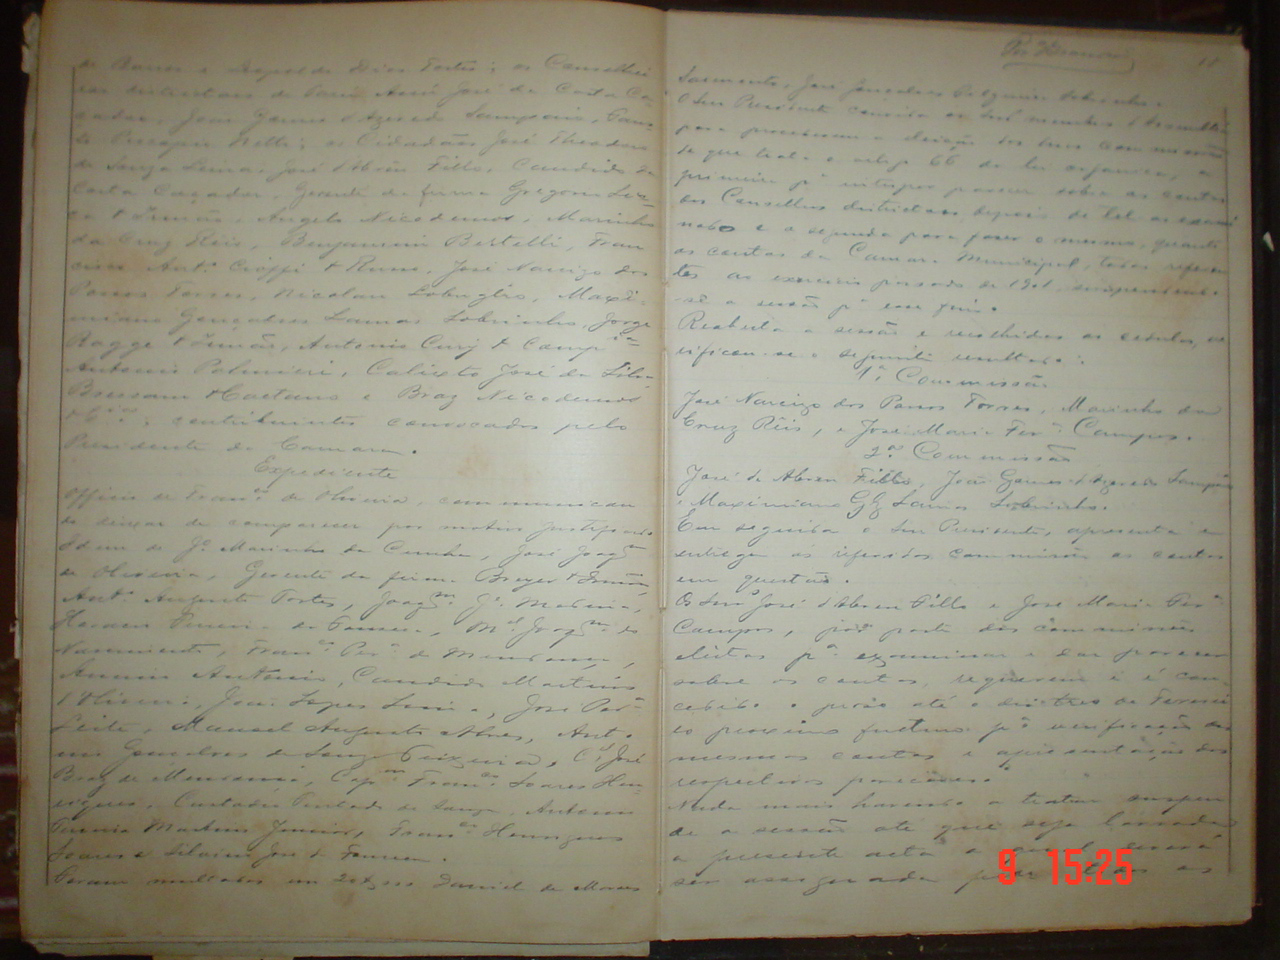 de Barros e Leopoldo Dias Fortes; os Conselhei
res districtaes de José da Costa Ca-
çador, João Gomes d'Azevedo Sampaio,
Netto; os Cidadãos José Theodoro
de Souza Lima, José d'Abreu Filho, Candido da
Costa Caçador, Gerente da firma Gregorio
& Irmão, Angelo Nicodemos, Marinho
da Cruz Reis, Benjamin Bertelli, Fran
cisco Antº Cioffi & Russo, José Narcizo dos
Passos Torres, Nicolau Lobuglio, Maxi-
miano Gonçalves Lamas Sobrinho, Jorge
Ragge & Irmão, Antonio Cury & Compª
Antonio Palmieri, Calixto José da Silva,
Bressam & Caetano e Braz Nicodemos
& Cª; contribuintes convocados pelo
Presidente da Camara.
Expediente
Officio de Franco de Oliveira, communican
do deixar de comparecer por motivo justificado
Idem de Je Marinho da Cunha, José Joaqm
de Oliveira, Gerente da firma & Irmão,
Antº Augusto Fortes, Joaqm Je
Pereira da Fonseca, Mel Joaqm do
Nascimento, Franco Perª de Mendonça,
Antonio, Candido Martins
d'Oliveira, José Lopes, José Perª
Leite, Manoel Augusto Alves, Anto
nio Gonçalves de Souza Teixeira, Cel José
Braz de Mendonça, Capm Franco Soares Hen-
riques, Custodio de Souza, Antonio
Pereira Martins Junior, Franco Henriques
Soares e Silvino José da Fonseca.
Foram multados em Daniel de Moraes
18
Sarmento, José Gonçalves Sobrinho.
O Snr Presidente convida os Snrs membros d'Assemblea
para procederem a eleição das duas commissões
de que trata o artigo 66 da lei organica, a
primeira pª interpor parecer sobre as contas
dos Conselhos districtaes depois de tel-as exami
nado e a segunda para fazer o mesmo, quanto
as contas da Camara Municipal, todas referen
tes ao exercicio passado de 1901, suspendendo
-se a sessão pª esse fim.
Reaberta a sessão e recolhidas as cedulas, ve
rificou-se o seguinte resultado:
1ª Commissão
José Narcizo dos Passos Torres, Marinho da
Cruz Reis, e José Maria Ferª Campos.
2ª Commissão
José de Abreu Filho, João Gomes d'Azevedo Sampaio
e Maximiano Glz Lamas Sobrinho.
Em seguida o Snr Presidente, apresenta e
entrega ás referidas commissões as contas
em questão.
Os Snrs José d'Abreu Filho e José Maria Ferª
Campos, por parte das commissões
eleitas pª examinar e dar parecer
sobre as contas, requerem e é con-
cedido o praso até o dia tres de Feverei
ro proximo futuro pª verificação das
mesmas contas e apresentação dos
respectivos pareceres.
Nada mais havendo a tratar suspen
de a sessão até que seja lavrada
a presente acta a qual deverá
ser assignada por todos os
9 15:25